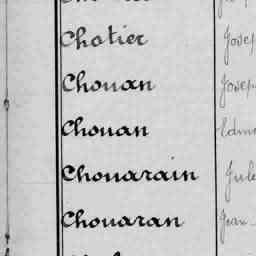 Chatier Josep
Chouan Josep
Chouan Edmo
Chouarain Jule
Chouaran Jean